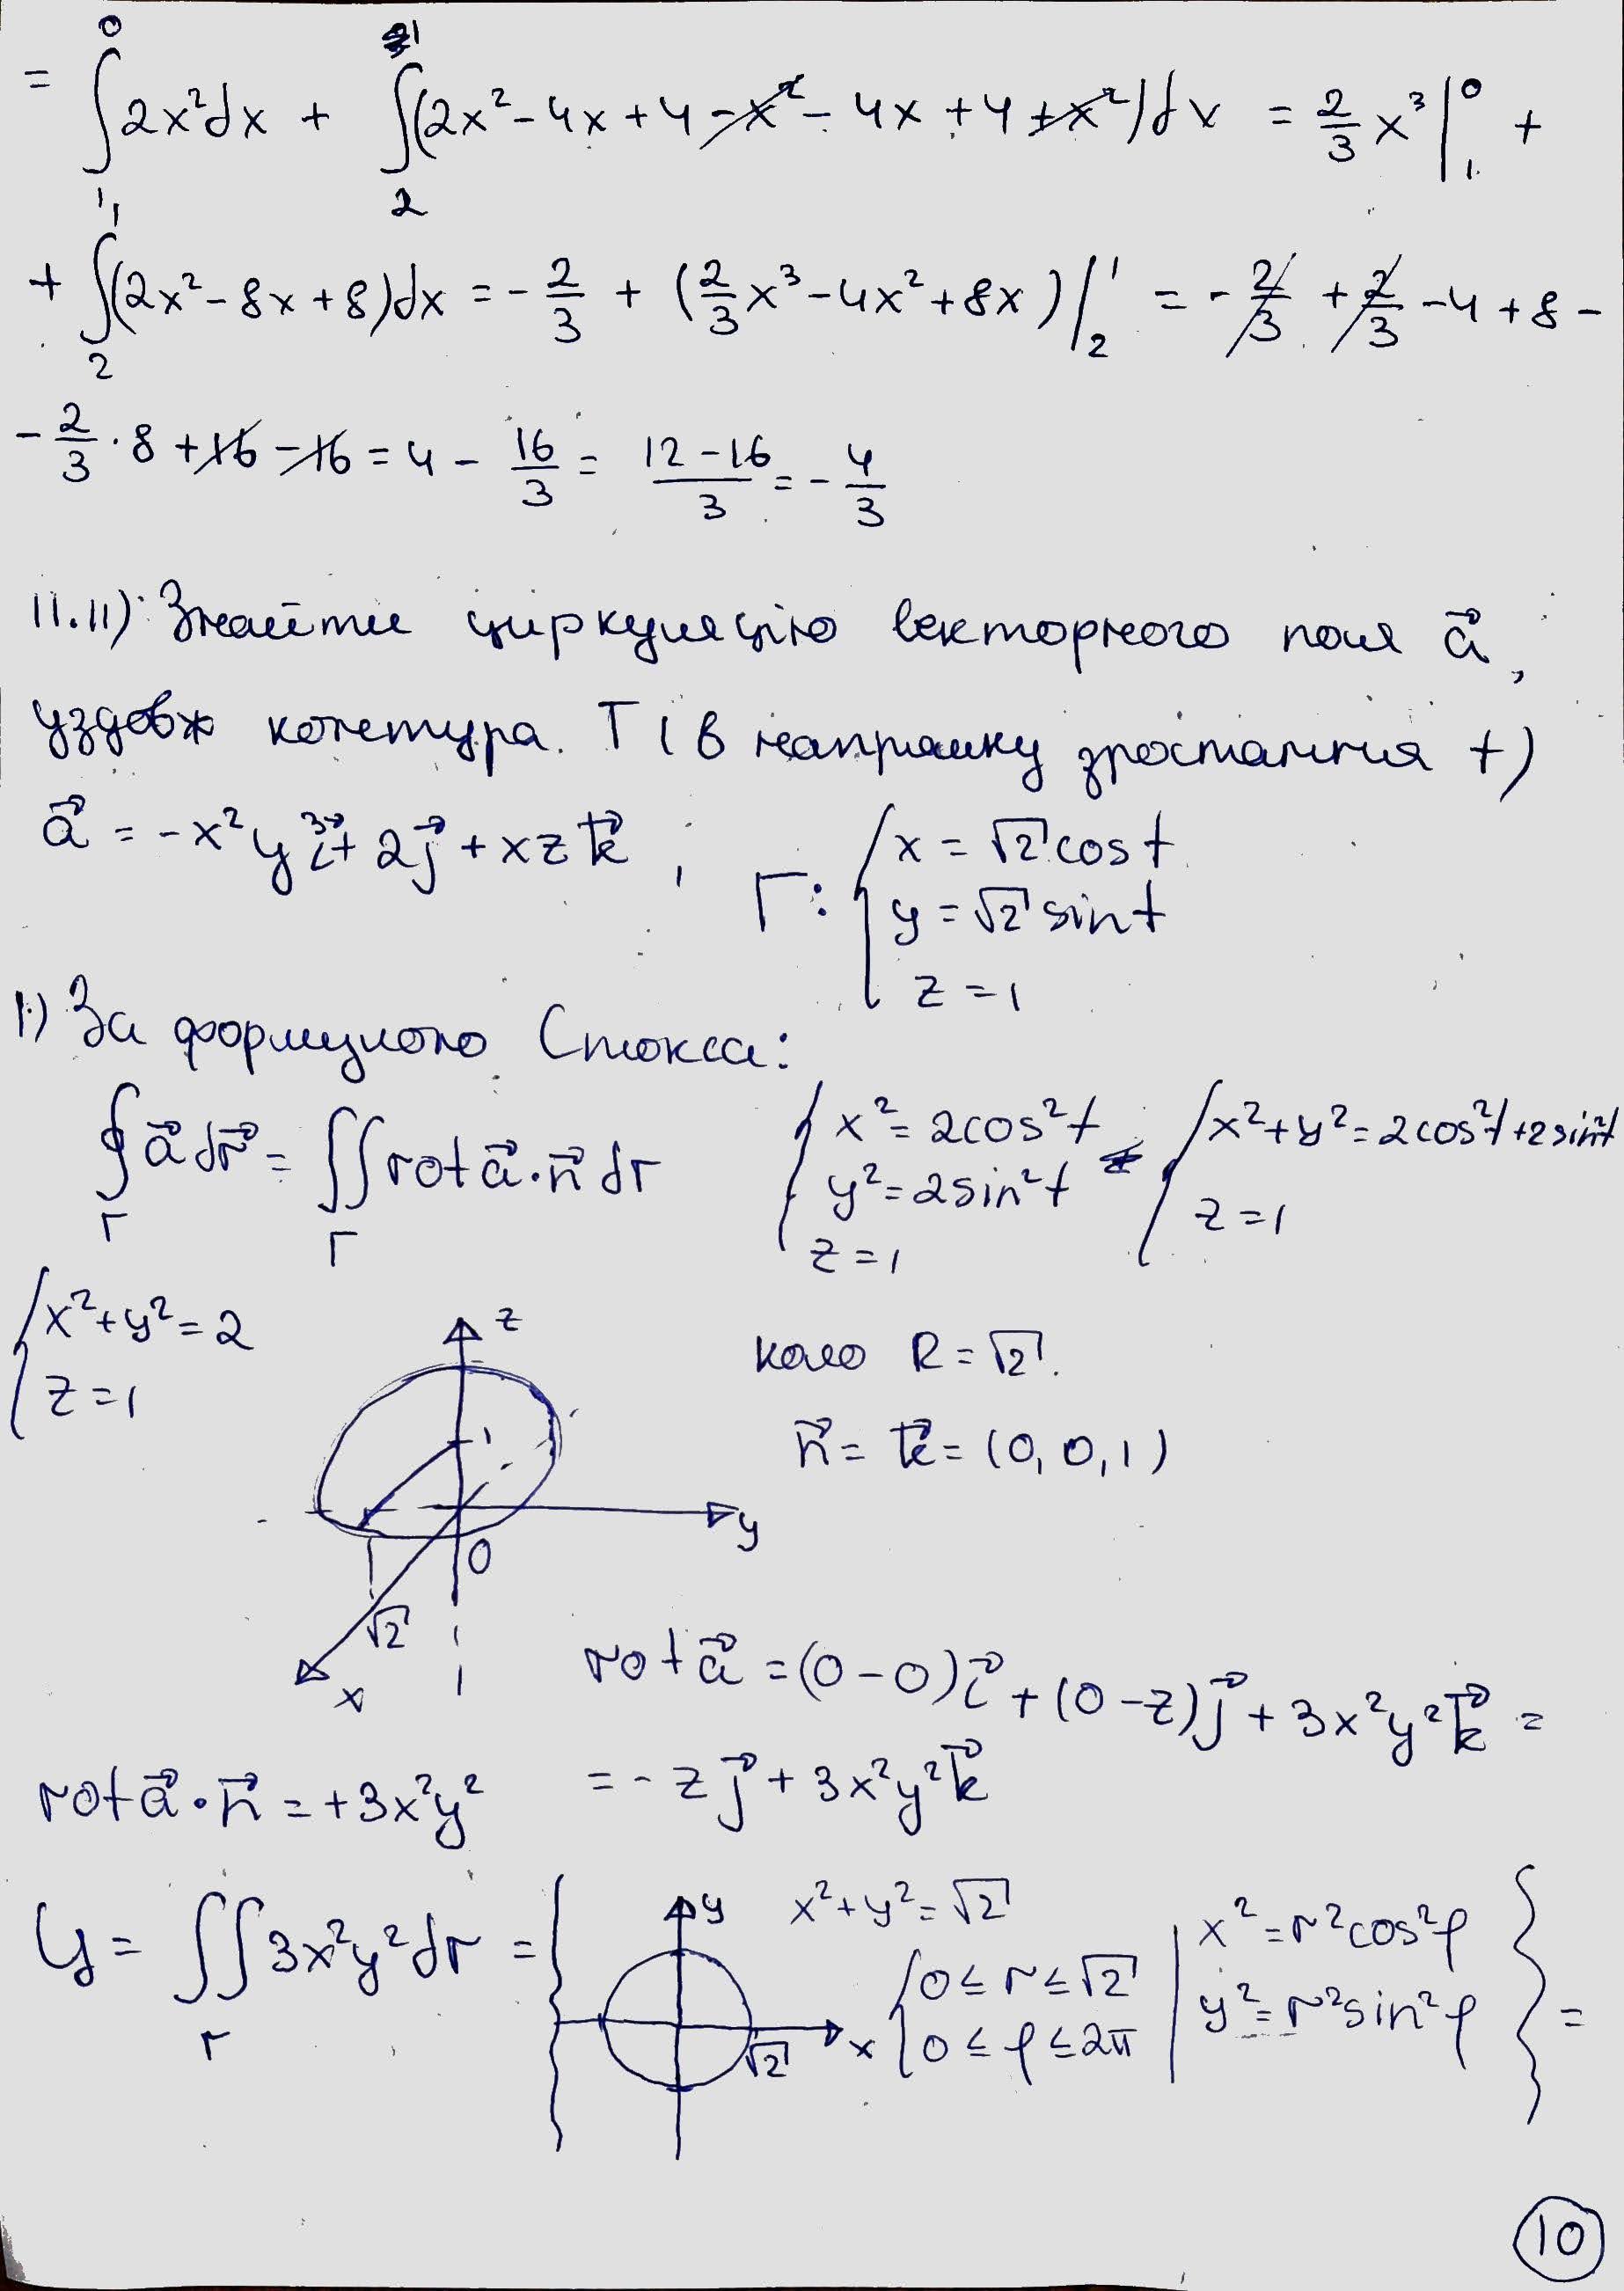 = ∫₁⁰ 2x²dx + ∫₂¹ (2x² - 4x + 4 - x² - 4x + 4 + x²)dx = 2/3 x³ |₁⁰ +
+ ∫₂¹ (2x² - 8x + 8)dx = - 2/3 + (2/3 x³ - 4x² + 8x) |₂¹ = - 2/3 + 2/3 - 4 + 8 -
- 2/3 · 8 + 16 - 16 = 4 - 16/3 = (12 - 16)/3 = - 4/3
11.11) Знайти циркуляцію векторного поля a⃗,
уздовж контура. Г (в напрямку зростання t)
a⃗ = -x²y³i⃗ + 2j⃗ + xzk⃗ , Г: { x = √2 cost
y = √2 sint
z = 1
1) За формулою Стокса:
∮_Г a⃗dr⃗ = ∬_Г rot a⃗ · n⃗ dr { x² = 2cos²t { x² + y² = 2cos²t + 2sin²t
y² = 2sin²t
z = 1 z = 1
{ x² + y² = 2
z = 1
z
коло R = √2.
n⃗ = k⃗ = (0, 0, 1)
1
y
0
√2
x
rot a⃗ = (0 - 0)i⃗ + (0 - z)j⃗ + 3x²y²k⃗ =
rot a⃗ · n⃗ = +3x²y² = - zj⃗ + 3x²y²k⃗
Ц = ∬_Г 3x²y²dr = { y x² + y² = √2 { 0 ≤ r ≤ √2 | x² = r²cos²φ } =
x √2 0 ≤ φ ≤ 2π | y² = r²sin²φ
10